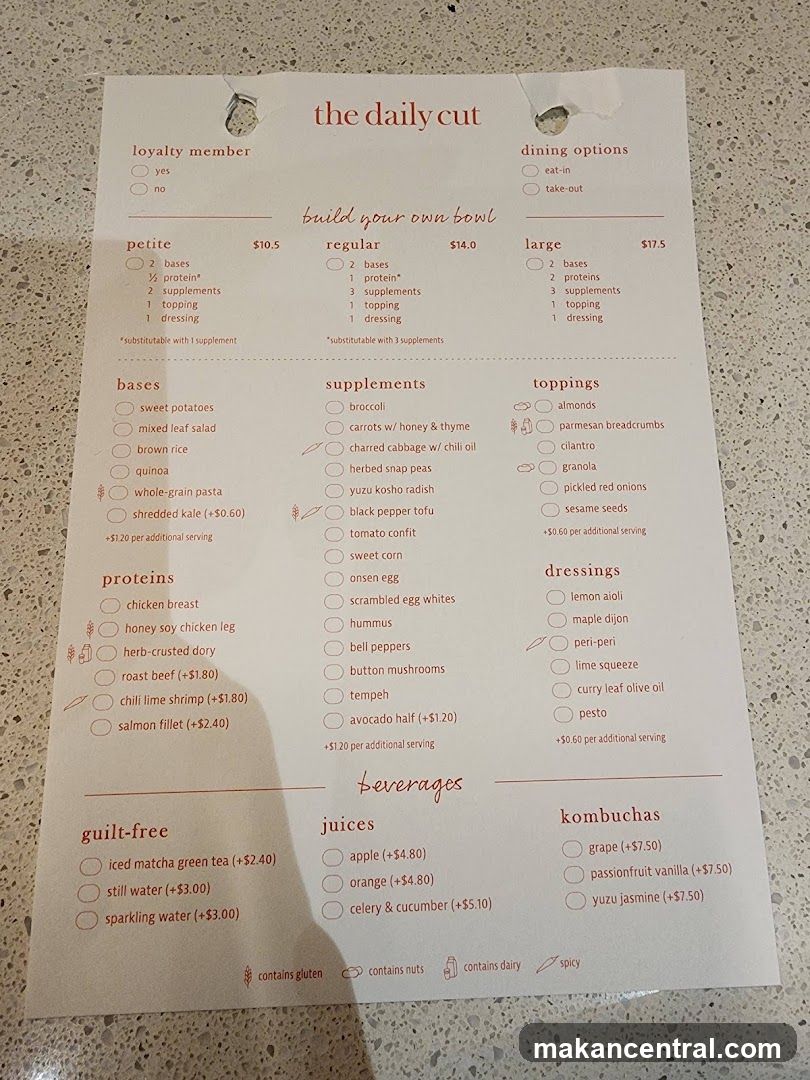 the daily cut
loyalty member
yes
no
dining options
eat-in
take-out
build your own bowl
petite $10.5
2 bases
½ protein*
2 supplements
1 topping
1 dressing
*substitutable with 1 supplement
regular $14.0
2 bases
1 protein*
3 supplements
1 topping
1 dressing
*substitutable with 3 supplements
large $17.5
2 bases
2 proteins
3 supplements
1 topping
1 dressing
bases
sweet potatoes
mixed leaf salad
brown rice
quinoa
whole-grain pasta
shredded kale (+$0.60)
+$1.20 per additional serving
proteins
chicken breast
honey soy chicken leg
herb-crusted dory
roast beef (+$1.80)
chili lime shrimp (+$1.80)
salmon fillet (+$2.40)
supplements
broccoli
carrots w/ honey & thyme
charred cabbage w/ chili oil
herbed snap peas
yuzu kosho radish
black pepper tofu
tomato confit
sweet corn
onsen egg
scrambled egg whites
hummus
bell peppers
button mushrooms
tempeh
avocado half (+$1.20)
+$1.20 per additional serving
toppings
almonds
parmesan breadcrumbs
cilantro
granola
pickled red onions
sesame seeds
+$0.60 per additional serving
dressings
lemon aioli
maple dijon
peri-peri
lime squeeze
curry leaf olive oil
pesto
+$0.60 per additional serving
beverages
guilt-free
iced matcha green tea (+$2.40)
still water (+$3.00)
sparkling water (+$3.00)
juices
apple (+$4.80)
orange (+$4.80)
celery & cucumber (+$5.10)
kombuchas
grape (+$7.50)
passionfruit vanilla (+$7.50)
yuzu jasmine (+$7.50)
contains gluten contains nuts contains dairy spicy
makancentral.com